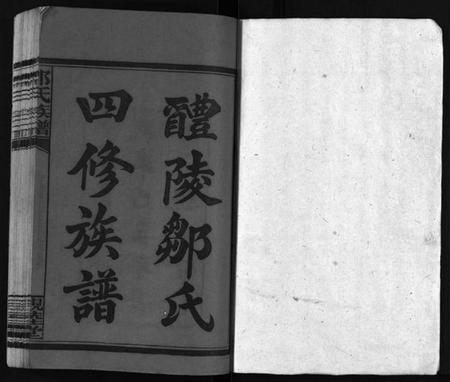 醴陵鄒氏
四修族譜
鄒氏族譜